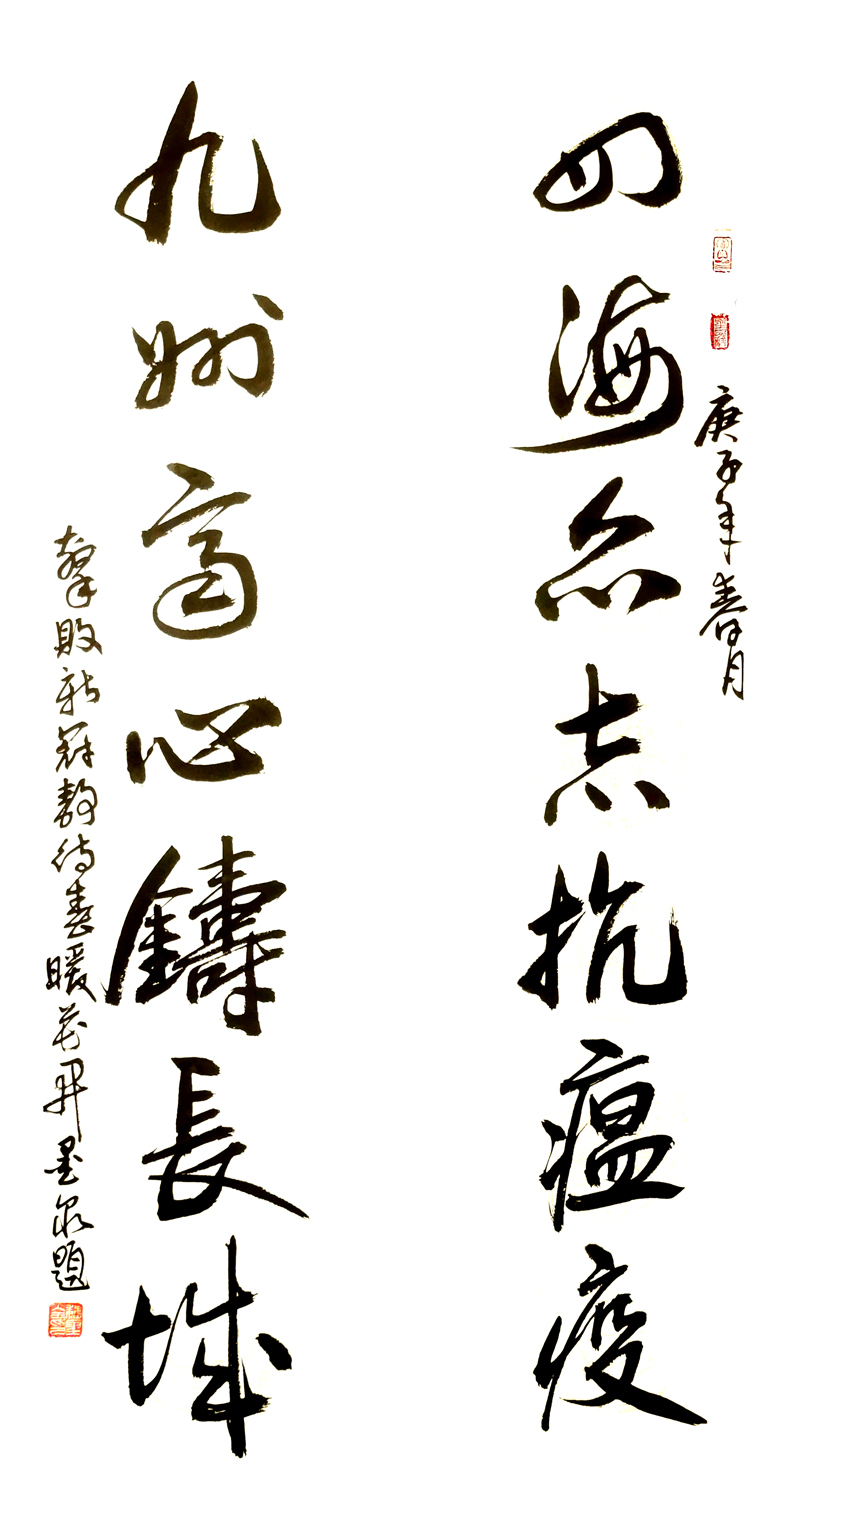 庚子年春月
四海众志抗瘟疫
九州齊心鑄長城
擊敗新冠静待春暖花開墨泉題